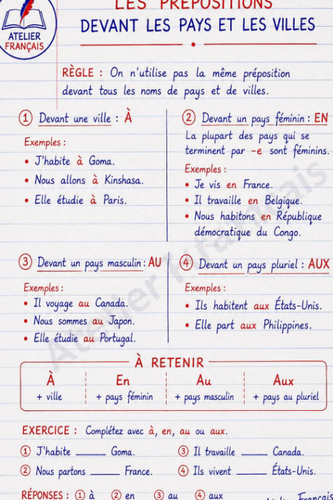 LES PRÉPOSITIONS
DEVANT LES PAYS ET LES VILLES
ATELIER
FRANÇAIS
RÈGLE : On n'utilise pas la même préposition
devant tous les noms de pays et de villes.
① Devant une ville : À
Exemples :
• J'habite à Goma.
• Nous allons à Kinshasa.
• Elle étudie à Paris.
② Devant un pays féminin : EN
La plupart des pays qui se
terminent par -e sont féminins.
Exemples :
• Je vis en France.
• Il travaille en Belgique.
• Nous habitons en République
démocratique du Congo.
③ Devant un pays masculin : AU
Exemples :
• Il voyage au Canada.
• Nous sommes au Japon.
• Elle étudie au Portugal.
④ Devant un pays pluriel : AUX
Exemples :
• Ils habitent aux États-Unis.
• Elle part aux Philippines.
À RETENIR
À
+ ville
En
+ pays féminin
Au
+ pays masculin
Aux
+ pays au pluriel
EXERCICE : Complétez avec à, en, au ou aux.
① J'habite _____ Goma.
② Nous partons _____ France.
③ Il travaille _____ Canada.
④ Ils vivent _____ États-Unis.
RÉPONSES : ① à ② en ③ au ④ aux
Français